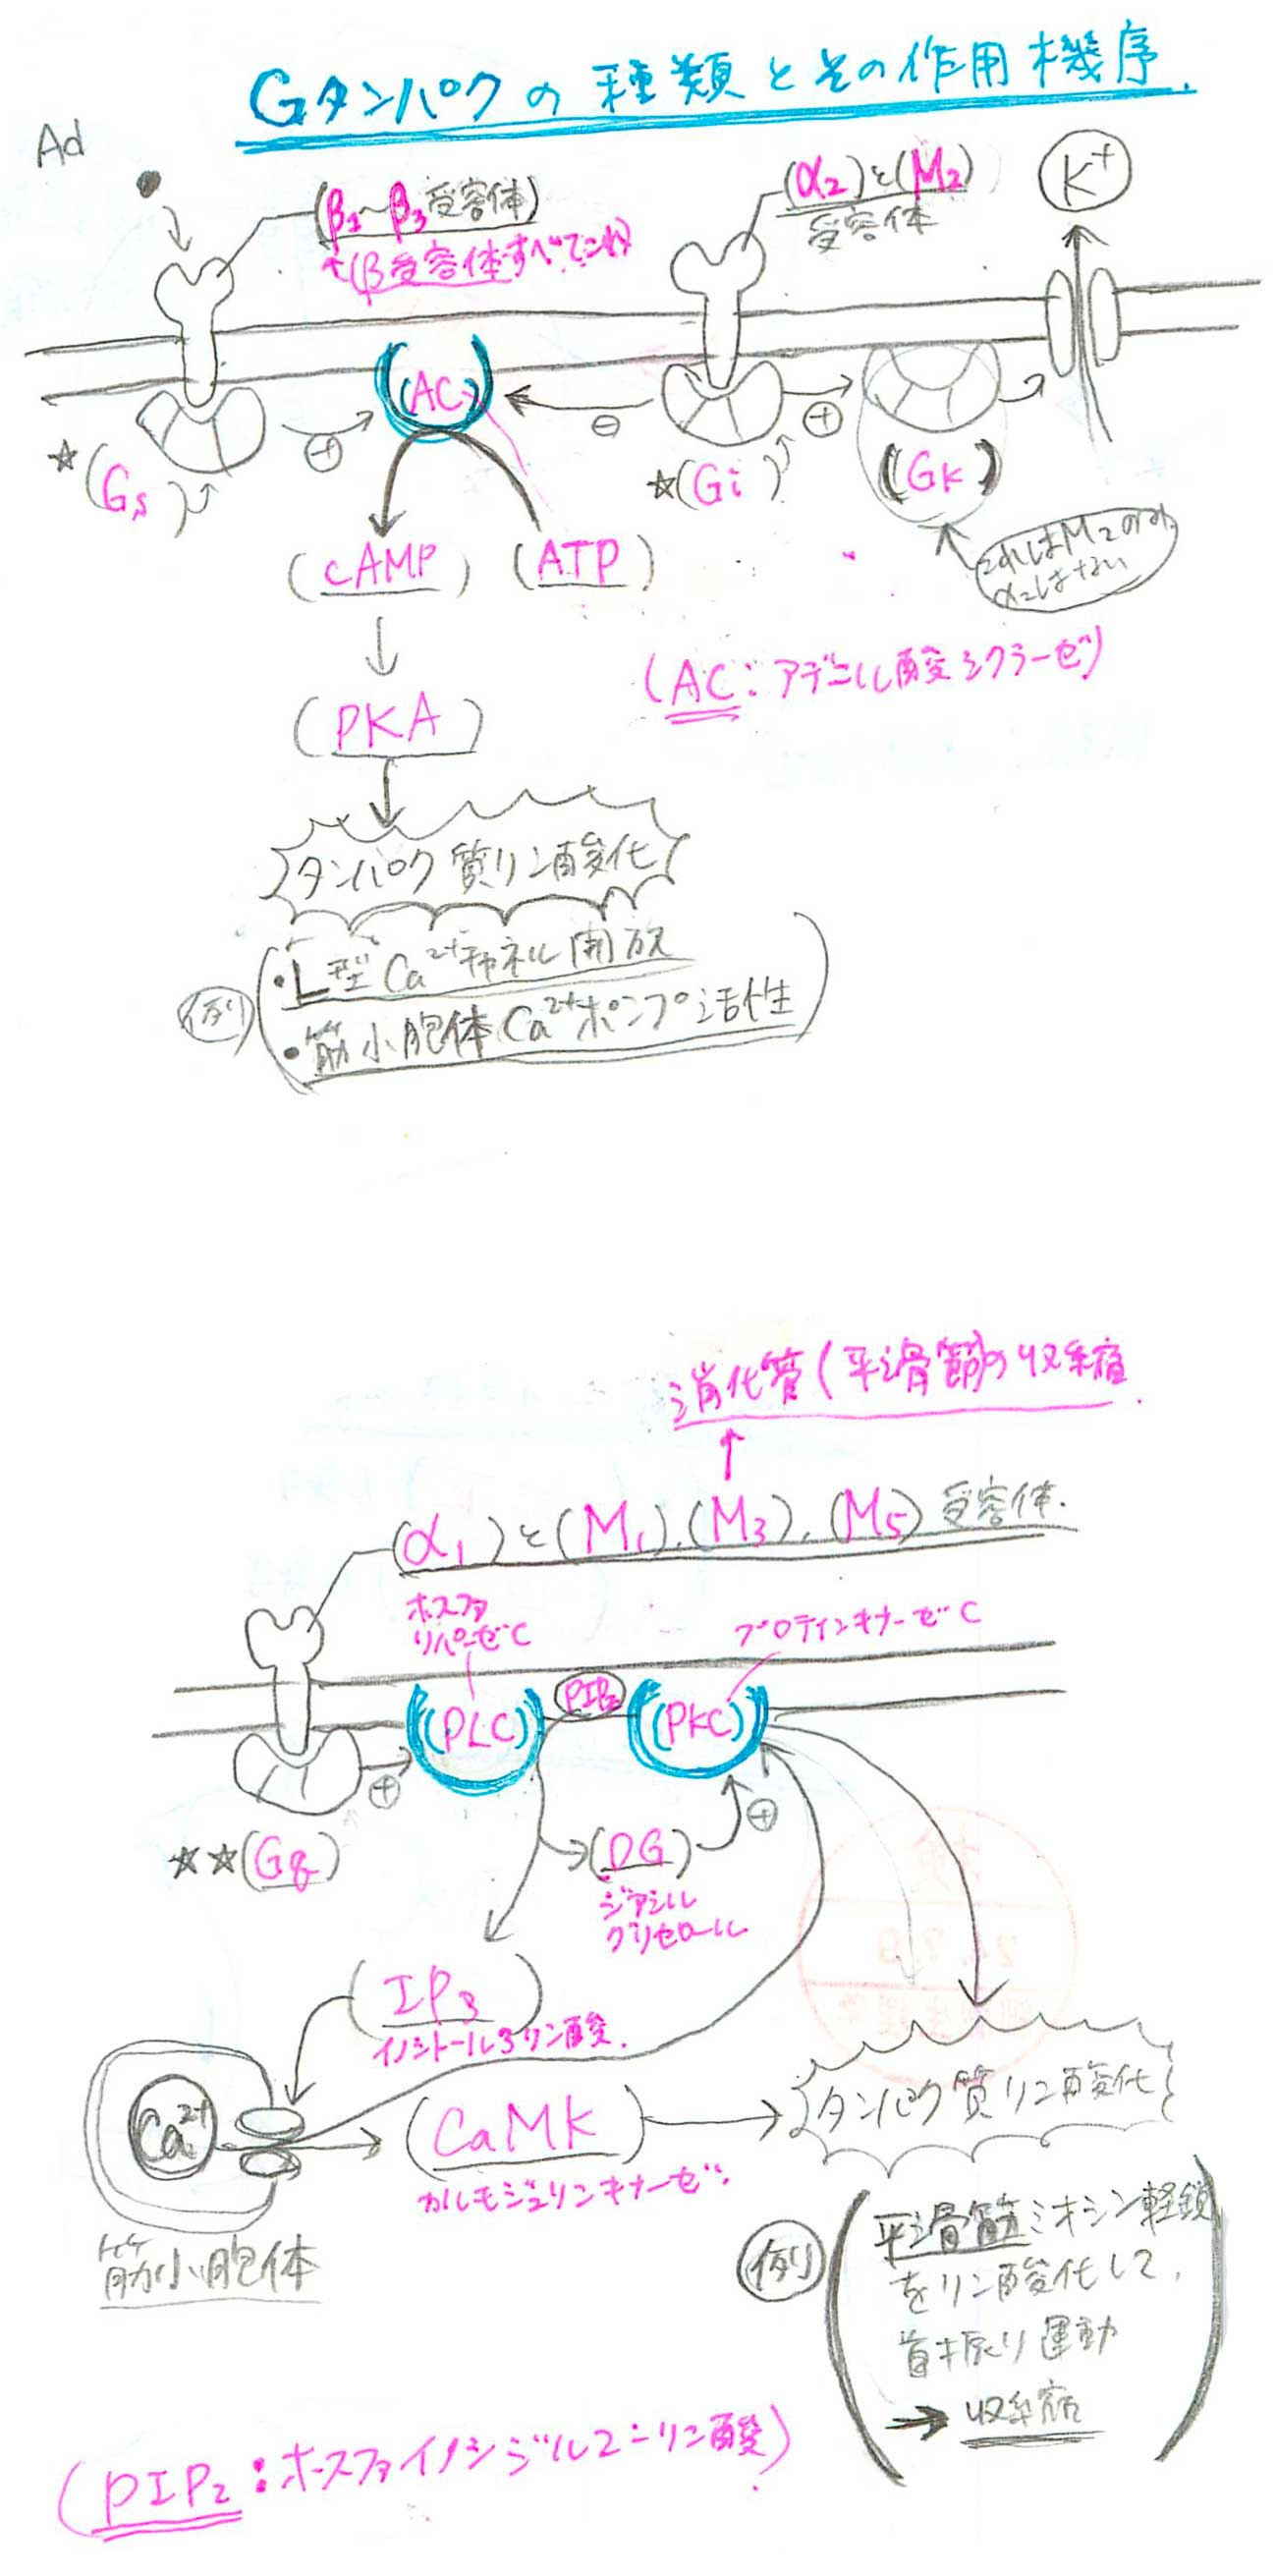 Gタンパクの種類とその作用機序.
Ad
(β1~β3受容体)
(β受容体すべてこれ)
(α2)と(M2)
受容体
K+
(AC)
⊕
⊖
⊕
☆(Gs)
☆(Gi)
(GK)
これはM2のみ
α2はない
(cAMP) (ATP)
(AC:アデニル酸シクラーゼ)
(PKA)
タンパク質リン酸化
例
・L型Ca2+チャネル開放
・筋小胞体Ca2+ポンプ活性
消化管(平滑筋)の収縮
(α1)と(M1),(M3),(M5)受容体.
ホスファ
リパーゼC
プロテインキナーゼC
(PLC)
PIP2
(PKC)
⊕
⊕
☆☆(Gq)
(DG)
ジアシル
グリセロール
(IP3)
イノシトール3リン酸.
Ca2+
(CaMK)
カルモジュリンキナーゼ.
タンパク質リン酸化
筋小胞体
例
平滑筋ミオシン軽鎖
をリン酸化して,
首振り運動
→収縮
(PIP2:ホスファイノシジル2ニリン酸)